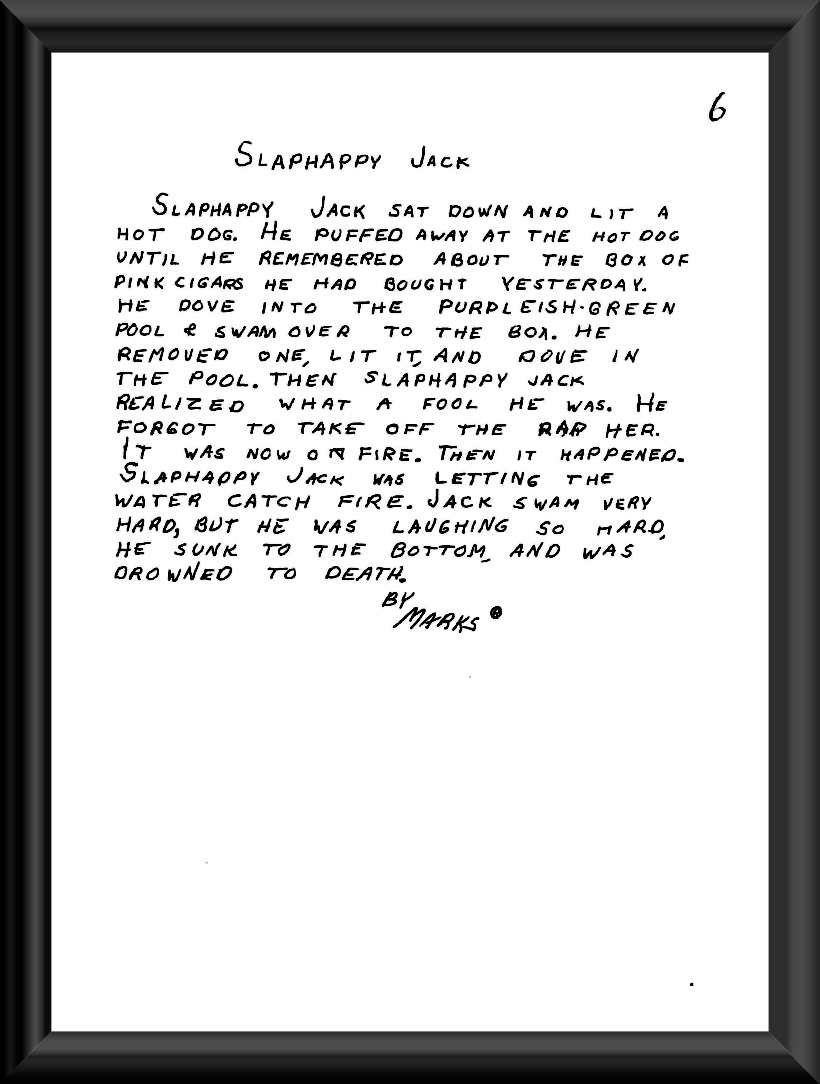 6
SLAPHAPPY JACK
SLAPHAPPY JACK SAT DOWN AND LIT A
HOT DOG. HE PUFFED AWAY AT THE HOT DOG
UNTIL HE REMEMBERED ABOUT THE BOX OF
PINK CIGARS HE HAD BOUGHT YESTERDAY.
HE DOVE INTO THE PURPLEISH-GREEN
POOL & SWAM OVER TO THE BOX. HE
REMOVED ONE, LIT IT, AND DOVE IN
THE POOL. THEN SLAPHAPPY JACK
REALIZED WHAT A FOOL HE WAS. HE
FORGOT TO TAKE OFF THE RAP HER.
IT WAS NOW ON FIRE. THEN IT HAPPENED.
SLAPHAPPY JACK WAS LETTING THE
WATER CATCH FIRE. JACK SWAM VERY
HARD, BUT HE WAS LAUGHING SO HARD,
HE SUNK TO THE BOTTOM, AND WAS
DROWNED TO DEATH.
BY
MARKS